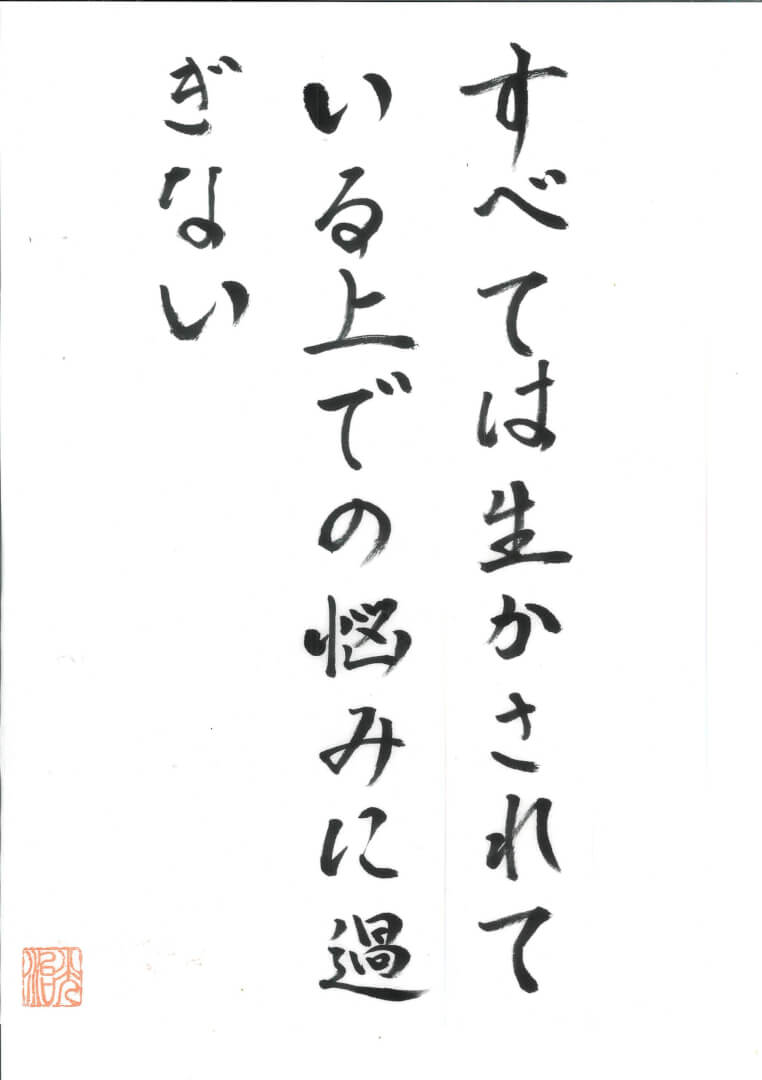 すべては生かされて
いる上での悩みに過
ぎない